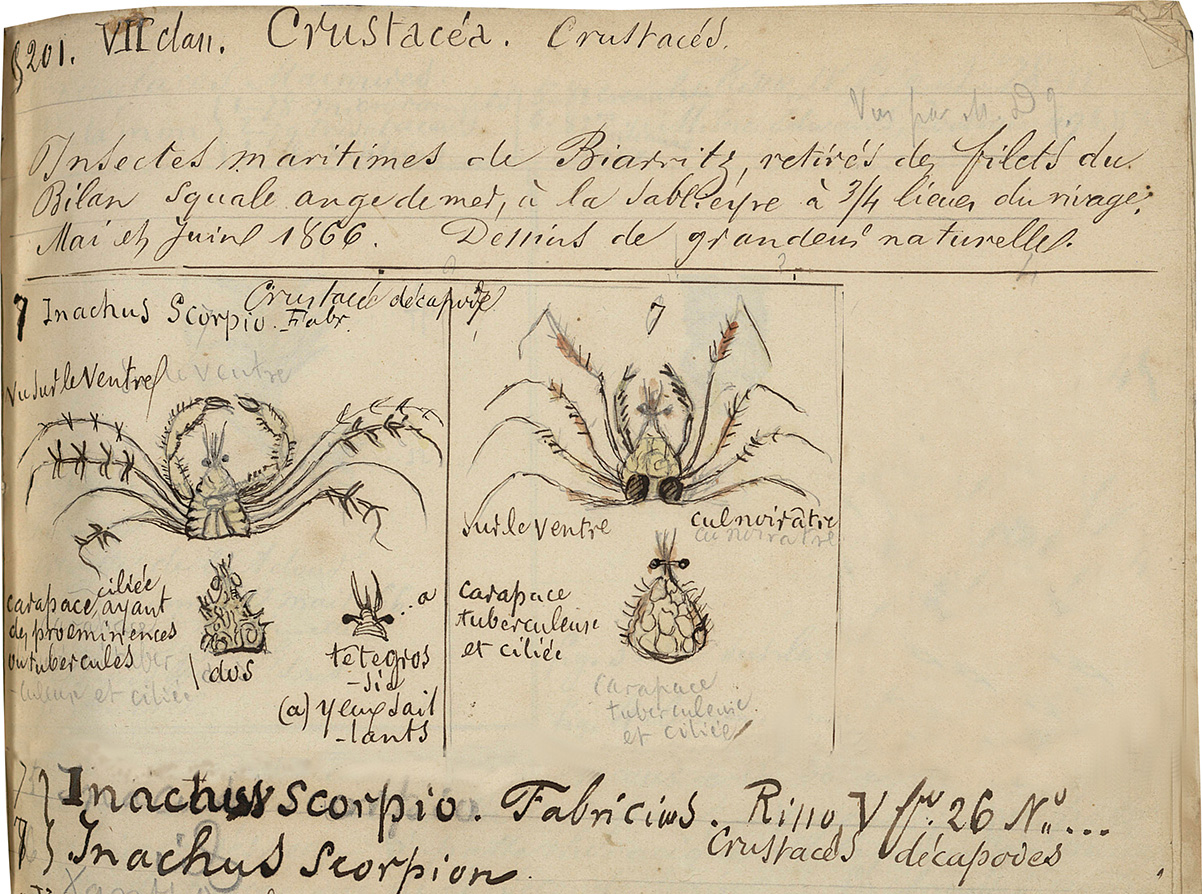 §201. VII clan. Crustacéa. Crustacés.
Vu par M. D
Insectes maritimes de Biarritz, retirés des filets du
Bilan squale ange de mer, à la Sableyre à 3/4 lieues du rivage.
Mai et Juin 1866. Dessins de grandeur naturelle.
7 Inachus Scorpio. Fabr.
Crustacé décapode
7
vu sur le Ventre
le ventre
ciliée
carapace, ayant
des proeminences
ou tubercules
et ciliée
dos
a
tetegros
-sie
(a) yeux sail
-lants
7
Sur le Ventre
cul noirâtre
cu noiratre
carapace
tuberculeuse
et ciliée
carapace
tuberculeuse
et ciliée
7 Inachus Scorpio. Fabricius. Risso, V 26 N.º ...
Crustacés décapodes
Inachus Scorpion.